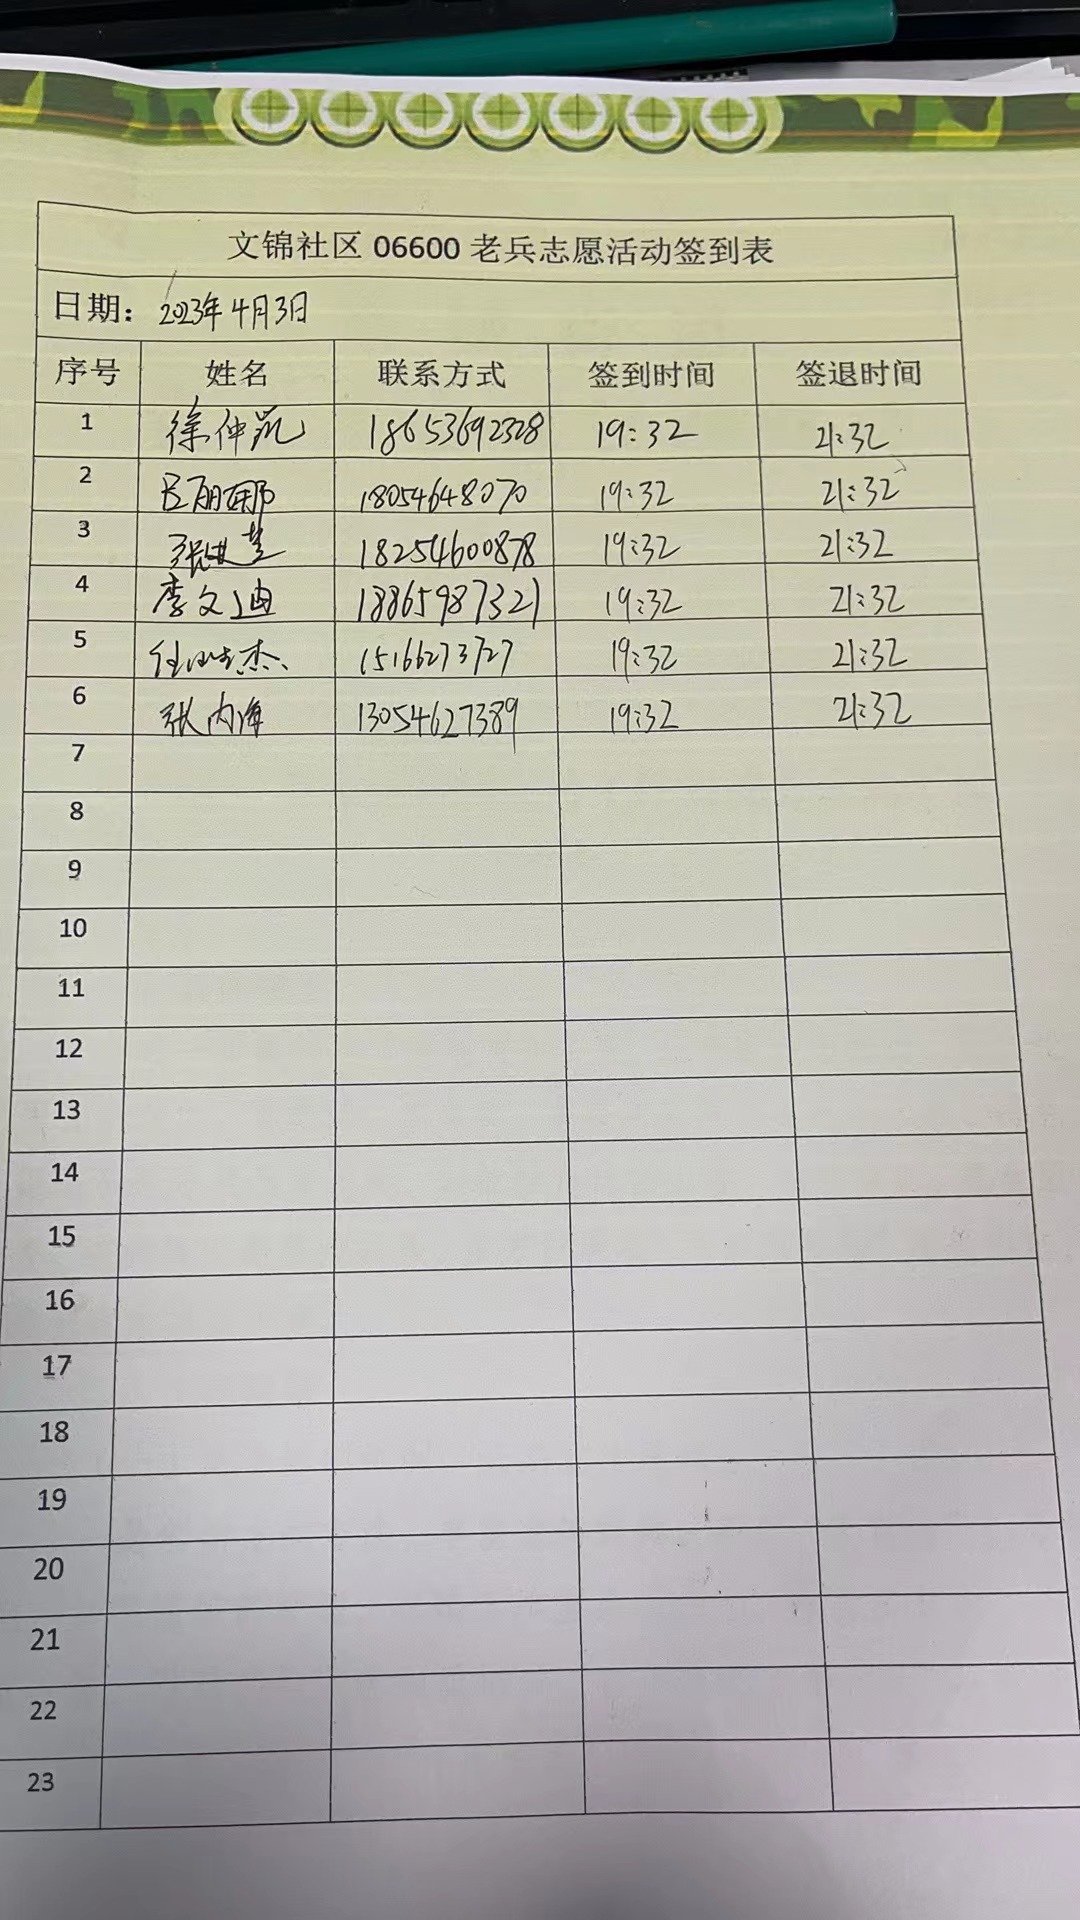 文锦社区 06600 老兵志愿活动签到表
日期： 2023年4月3日
序号 姓名 联系方式 签到时间 签退时间
1 徐仲凯 18653692328 19:32 21:32
2 吕丽娜 18054648070 19:32 21:32
3 张 18254600878 19:32 21:32
4 李文迪 18865987321 19:32 21:32
5 任 杰 15166273727 19:32 21:32
6 张内海 13054627389 19:32 21:32
7
8
9
10
11
12
13
14
15
16
17
18
19
20
21
22
23